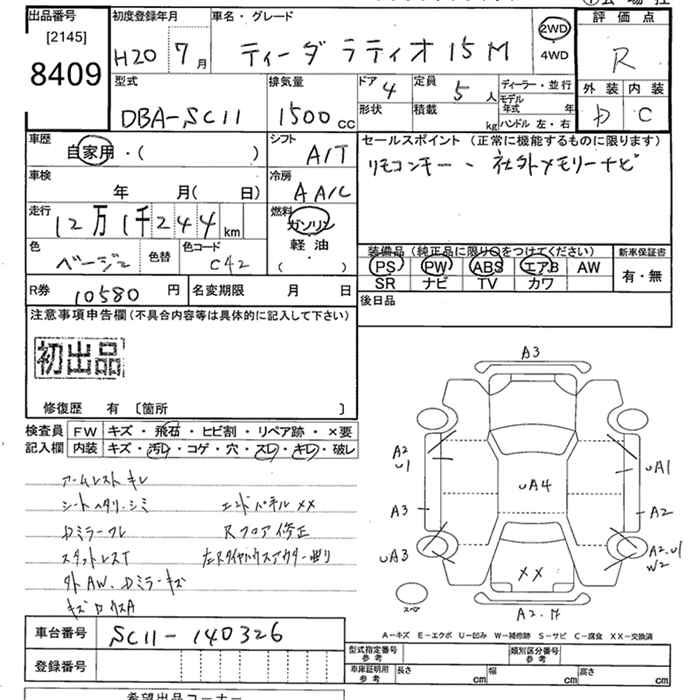 出品番号
[2145]
8409
初度登録年月
H20 7月
車名・グレード
ティーダ ラティオ 15M
2WD
4WD
評価点
R
外装 内装
D C
型式
DBA-SC11
排気量
1500cc
ドア 4
形状
定員 5人
積載 kg
ディーラー・並行
モデル年式 年
ハンドル 左・右
車歴
自家用・( )
シフト
A/T
車検
年 月( 日)
冷房
AA/C
走行
12万1千244km
燃料
ガソリン
軽油
( )
色
ベージュ
色替
色コード
C42
セールスポイント (正常に機能するものに限ります)
リモコンキー、社外メモリーナビ
装備品(純正品に限り○をつけてください)
PS PW ABS エアB AW
SR ナビ TV カワ
新車保証書
有・無
R券 10580円
名変期限 月 日
後日品
注意事項申告欄(不具合内容等は具体的に記入して下さい)
初出品
修復歴 有 〔箇所 〕
検査員記入欄
FW キズ・飛石・ヒビ割・リペア跡・×要
内装 キズ・汚レ・コゲ・穴・スレ・キレ・破レ
アームレストキレ
シートヘタリ・シミ
エンドパネルXX
Dミラーワレ
Rフロア修正
スタットレスT
左Rタイヤハウスアウター曲り
外AW、Dミラーキズ
A3
A2
U1
UA1
UA4
A3
A2
UA3
A2.U1
W2
XX
スペア
A-キズ E-エクボ U-凹み W-補修跡 S-サビ C-腐食 XX-交換済
車台番号
SC11-140326
登録番号
型式指定番号
参考
類別区分番号
参考
車庫証明用
参考
長さ cm
幅 cm
高さ cm
希望出品コーナー